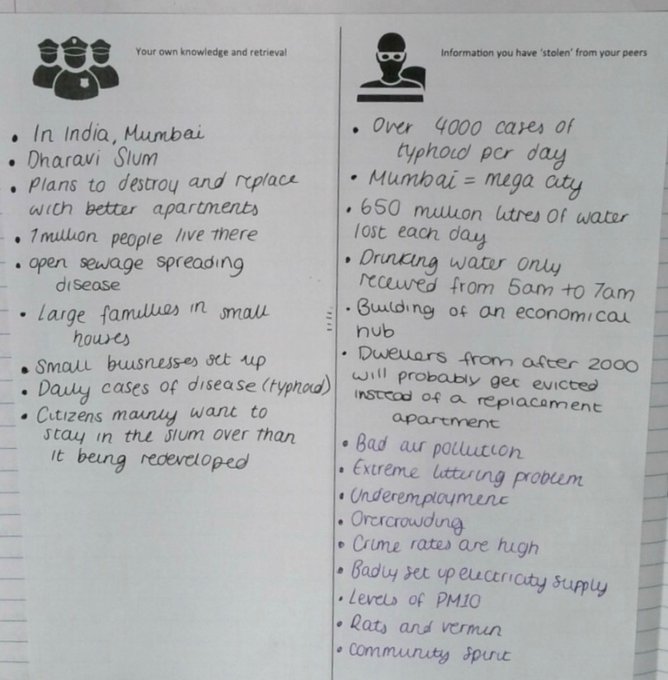 Your own knowledge and retrieval
• In India, Mumbai
• Dharavi Slum
• Plans to destroy and replace
with better apartments
• 1 million people live there
• open sewage spreading
disease
• Large families in small
houses
• Small buisnesses set up
• Daily cases of disease (typhoid)
• Citizens mainly want to
stay in the slum over than
it being redeveloped
Information you have 'stolen' from your peers
• Over 4000 cases of
typhoid per day
• Mumbai = mega city
• 650 million litres of water
lost each day
• Drinking water only
received from 5am to 7am
• Building of an economical
hub
• Dwellers from after 2000
will probably get evicted
instead of a replacement
apartment
• Bad air pollution
• Extreme littering problem
• Underemployment
• Overcrowding
• Crime rates are high
• Badly set up electricity supply
• Levels of PM10
• Rats and vermin
• community spirit